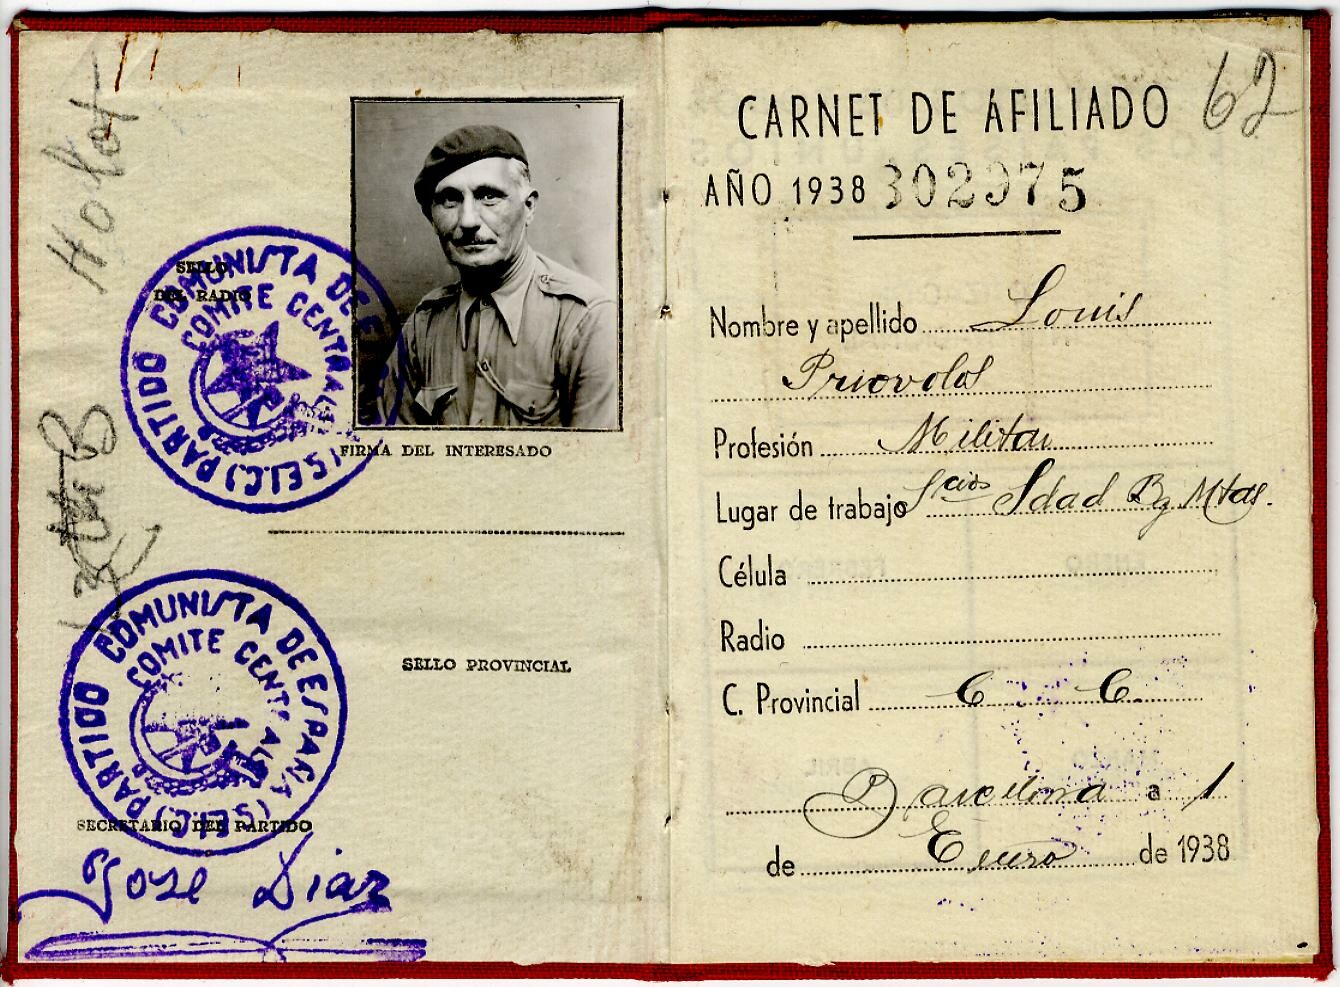 SELLO
DEL RADIO
PARTIDO COMUNISTA DE ESPAÑA (S.E.I.C.)
COMITE CENTRAL
FIRMA DEL INTERESADO
SELLO PROVINCIAL
PARTIDO COMUNISTA DE ESPAÑA (S.E.I.C.)
COMITE CENTRAL
SECRETARIO DEL PARTIDO
Jose Diaz
62
CARNET DE AFILIADO
AÑO 1938 302975
Nombre y apellido Louis
Priovolos
Profesión Militar
Lugar de trabajo Scios Sdad Bg Mtas.
Célula
Radio
C. Provincial C C.
Barcelona a 1
de Enero de 1938